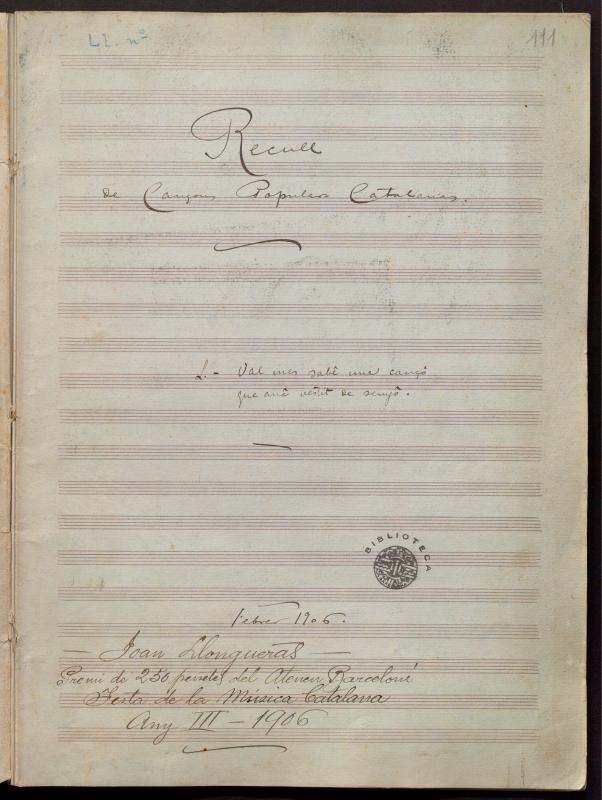 Ll. nº
111
Recull
de Cançons Populars Catalanas.
L. - Val mes sabê una cançó
que anâ vestit de senyó.
BIBLIOTECA
Febrer 1906.
— Joan Llongueras —
Premi de 250 pesetes del Ateneu Barceloní
Festa de la Música Catalana
Any III - 1906